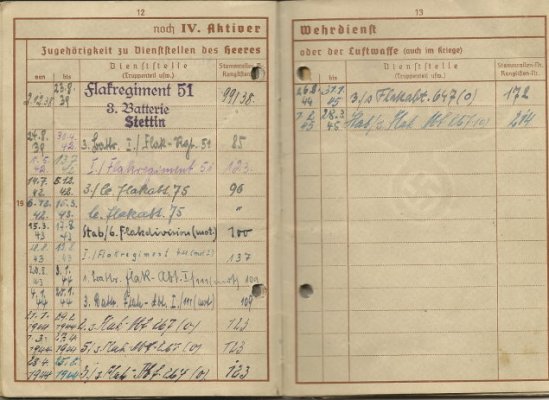 12
noch IV. Aktiver
Zugehörigkeit zu Dienststellen des Heeres
von
bis
Dienststelle
(Truppenteil usw.)
Stammrollen-Nr.
Ranglisten-Nr.
2.12.38
23.8.
39
Flakregiment 51
3. Batterie
Stettin
99/38.
24.8.
39
30.4.
42
3. Battr. I./Flak-Rgt. 51
85
1.5.
42
13.7.
42
I./Flakregiment 51
123.
14.7.
42
5.12.
42.
3./le. Flakabt. 75
96
19
6.12.
42
14.3.
43.
le. Flakabt. 75
"
15.3.
43
17.8.
43
Stab/6. Flakdivision (mot.)
200
43
43
I./Flakregiment
137
43
44
1. Battr. Flak-Abt. I/111 (mot)
44
44
3. Battr. Flak-Abt. I./111 (mot)
109
21.1.
1944
1944
2./s. Flak Abt. 267 (o)
123
7.3.
1944
1944
5./s. Flak Abt. 267 (o)
123
23.4.
1944
25.8.
1944
3./s. Flak-Abt. 267 (o)
123
13
Wehrdienst
oder der Luftwaffe (auch im Kriege)
von
bis
Dienststelle
(Truppenteil usw.)
Stammrollen-Nr.
Ranglisten-Nr.
26.8.
44
31.1.
45
3./s Flakabt. 647 (o)
172
45
28.3.
45
Stab/s. Flak Abt. 267 (o)
214